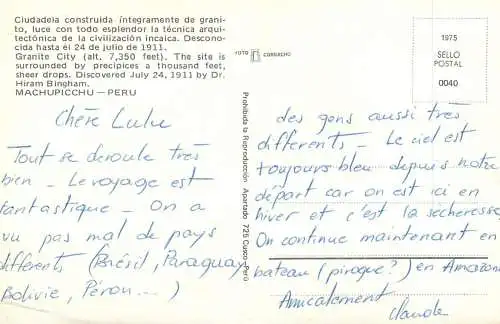 Ciudadela construida íntegramente de grani-
to, luce con todo esplendor la técnica arqui-
tectónica de la civilización incaica. Descono-
cida hasta el 24 de julio de 1911.
Granite City (alt. 7,350 feet). The site is
surrounded by precipices a thousand feet,
sheer drops. Discovered July 24, 1911 by Dr.
Hiram Bingham.
MACHUPICCHU — PERU
FOTO CORBACHO
1975
SELLO
POSTAL
0040
Prohibida la Reproducción Apartado 725 Cusco-Perú
Chère Lulu
Tout se déroule très
bien - Le voyage est
fantastique - On a
vu pas mal de pays
différents (Brésil, Paraguay,
Bolivie, Pérou ...)
des gens aussi très
différents - Le ciel est
toujours bleu depuis notre
départ car on est ici en
hiver et c'est la sécheresse.
On continue maintenant en
bateau (pirogue?) en Amazonie
Amicalement
Claude